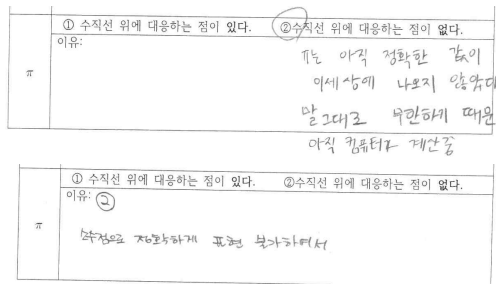 ① 수직선 위에 대응하는 점이 있다. ②수직선 위에 대응하는 점이 없다.
이유:
π는 아직 정확한 값이
이세상에 나오지 않았다
π
말그대로 무한하기 때문
아직 컴퓨터가 계산중
① 수직선 위에 대응하는 점이 있다. ②수직선 위에 대응하는 점이 없다.
이유: ②
π
소수점으로 정확하게 표현 불가하여서